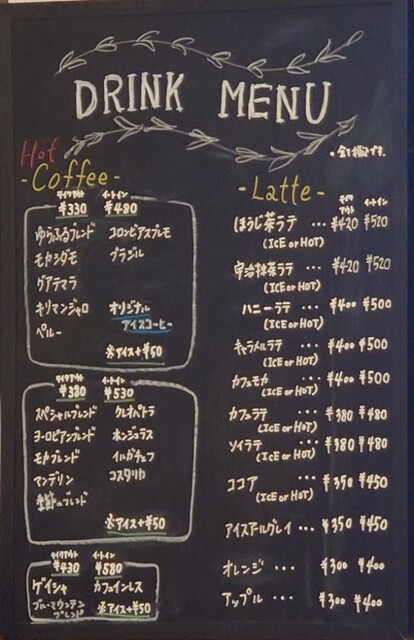 DRINK MENU
Hot
-Coffee-
テイクアウト イートイン
¥330 ¥480
ゆらふるブレンド コロンビアスプレモ
モカシダモ ブラジル
グアテマラ
キリマンジャロ オリジナル
アイスコーヒー
ペルー
※アイス+¥50
テイクアウト イートイン
¥380 ¥530
スペシャルブレンド クレオパトラ
ヨーロピアンブレンド ホンジュラス
モカブレンド イルガチェフ
マンデリン コスタリカ
季節のブレンド
※アイス+¥50
テイクアウト イートイン
¥430 ¥580
ゲイシャ カフェインレス
ブルーマウンテン
ブレンド
※アイス+¥50
-Latte-
テイク
アウト イートイン
ほうじ茶ラテ ・・・ ¥420 ¥520
(ICE or HOT)
宇治抹茶ラテ ・・・ ¥420 ¥520
(ICE or HOT)
ハニーラテ ・・・ ¥400 ¥500
(ICE or HOT)
キャラメルラテ ・・・ ¥400 ¥500
(ICE or HOT)
カフェモカ ・・・ ¥400 ¥500
(ICE or HOT)
カフェラテ ・・・ ¥380 ¥480
(ICE or HOT)
ソイラテ ・・・ ¥380 ¥480
(ICE or HOT)
ココア ・・・ ¥350 ¥450
(ICE or HOT)
アイスアールグレイ ・・・ ¥350 ¥450
オレンジ ・・・ ¥300 ¥400
アップル ・・・ ¥300 ¥400